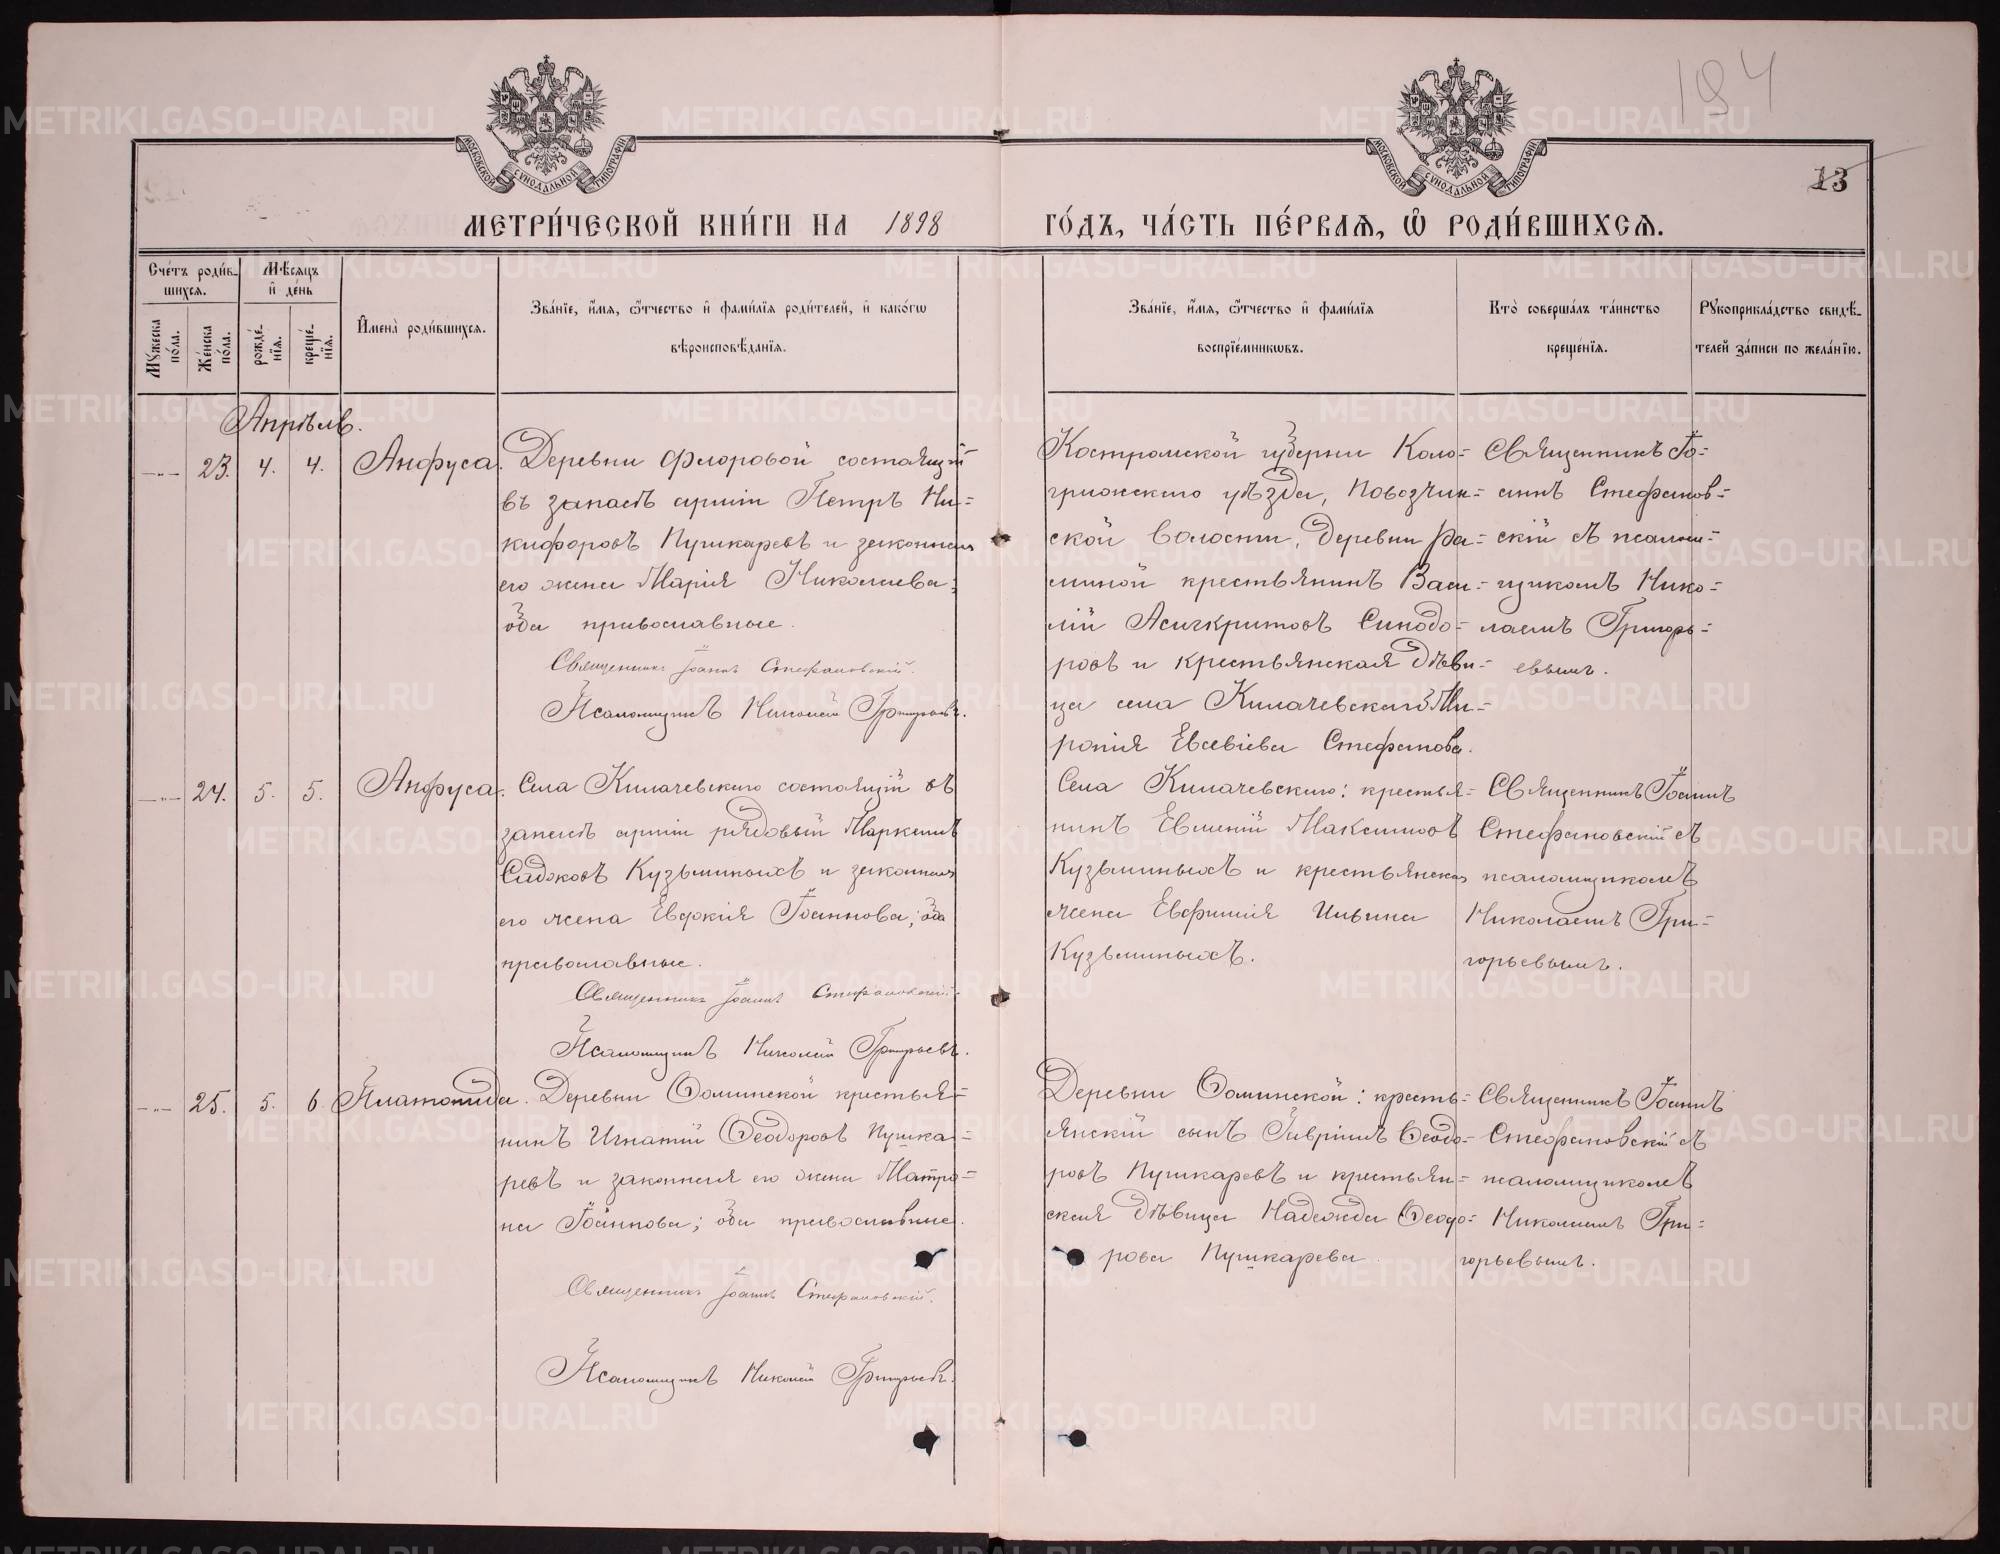 194
13
МОСКОВСКОЙ СѴНОДАЛЬНОЙ ТИПОГРАФІИ
МОСКОВСКОЙ СѴНОДАЛЬНОЙ ТИПОГРАФІИ
МЕТРИ́ЧЕСКОЙ КНИ́ГИ НА 1898 ГО́ДЪ, ЧА́СТЬ ПЕ́РВАѦ, Ѡ РОДИ́ВШИХСѦ.
Сче́тъ роди́в-
шихсѧ.
Мѣсѧцъ
и҆ де́нь
Мꙋжеска по́ла.
Же́нска по́ла.
рожде́-
нїѧ.
креще́-
нїѧ.
И҆мена̀ роди́вшихсѧ.
Зва́нїе, и҆́мѧ, ѻ҆́тчество и҆ фами́лїѧ роди́телей, и҆ како́гѡ
вѣроисповѣ́данїѧ.
Зва́нїе, и҆́мѧ, ѻ҆́тчество и҆ фами́лїѧ
воспрїе́мникѡвъ.
Кто̀ соверша́лъ та́инство
креще́нїѧ.
Рꙋкоприкла́дство свидѣ́-
телей за́писи по жела́нїю.
Апрѣль.
—„— 23. 4. 4. Анфуса. Деревни Флоровой состоящій
въ запасѣ арміи Петръ Ни=
кифоровъ Пушкаревъ и законная
его жена Марія Николаева;
оба православные.
Священникъ Іоаннъ Стефановскій.
Псаломщикъ Николай Григорьевъ.
Костромской губерни Коло=
гривскаго уѣзда,
ской волости, Деревни Ра=
миной крестьянинъ Васи=
лій Асигкритовъ Синодо=
ровъ и крестьянская дѣви=
ца села Килачевскаго Ми=
ропія Евсевіева Стефанова.
Священникъ Іо=
аннъ Стефанов=
скій съ псалом=
щикомъ Нико=
лаемъ Григорь=
евымъ.
—„— 24. 5. 5. Анфуса. Села Килачевскаго состоящій въ
запасѣ арміи рядовый Маркеллъ
Садоковъ Кузьминыхъ и законная
его жена Евдокія Іоаннова; оба
православные.
Священникъ Іоаннъ Стефановскій.
Псаломщикъ Николай Григорьевъ.
Села Килачевскаго: крестья=
нинъ Евгеній Максимовъ
Кузьминыхъ и крестьянская
жена Евфимія Ильина
Кузьминыхъ.
Священникъ Іоаннъ
Стефановскій съ
псаломщикомъ
Николаемъ Гри=
горьевымъ.
—„— 25. 5. 6 Платонида. Деревни Ѳоминской крестья=
нинъ Игнатій Ѳеодоровъ Пушка=
ревъ и законная его жена Матро=
на Іоаннова; оба православные.
Священникъ Іоаннъ Стефановскій.
Псаломщикъ Николай Григорьевъ.
Деревни Ѳоминской: кресть=
янскій сынъ Гавріилъ Ѳеодо=
ровъ Пушкаревъ и крестьян=
ская дѣвица Надежда Ѳеодо=
рова Пушкарева
Священникъ Іоаннъ
Стефановскій съ
псаломщикомъ
Николаемъ Гри=
горьевымъ.
METRIKI.GASO-URAL.RU